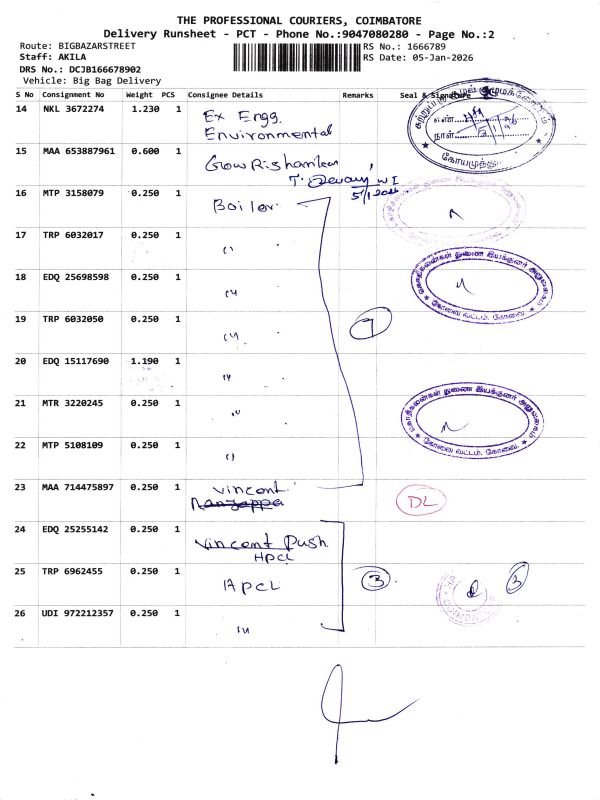 THE PROFESSIONAL COURIERS, COIMBATORE
Delivery Runsheet - PCT - Phone No.:9047080280 - Page No.:2
Route: BIGBAZARSTREET
RS No.: 1666789
Staff: AKILA
RS Date: 05-Jan-2026
DRS No.: DCJB166678902
Vehicle: Big Bag Delivery
S No Consignment No Weight PCS Consignee Details Remarks Seal & Signature
14 NKL 3672274 1.230 1 Ex Engg.
Environmental
எண்
நாள்
கோயமுத்தூர்
15 MAA 653887961 0.600 1
5/1/2026
16 MTP 3158079 0.250 1 Boiler
17 TRP 6032017 0.250 1 "
18 EDQ 25698598 0.250 1 "
கொதிகலன்கள் துணை இயக்குனர் அலுவலகம்
கோவை வட்டம், கோவை.
19 TRP 6032050 0.250 1 "
7
20 EDQ 15117690 1.190 1 "
21 MTR 3220245 0.250 1 "
கொதிகலன்கள் துணை இயக்குனர் அலுவலகம்
கோவை வட்டம், கோவை.
22 MTP 5108109 0.250 1 "
23 MAA 714475897 0.250 1 Vincent
Nanjappa
DL
24 EDQ 25255142 0.250 1 Vincent Push
HPCL
25 TRP 6962455 0.250 1 HPCL
3
3
26 UDI 972212357 0.250 1 "